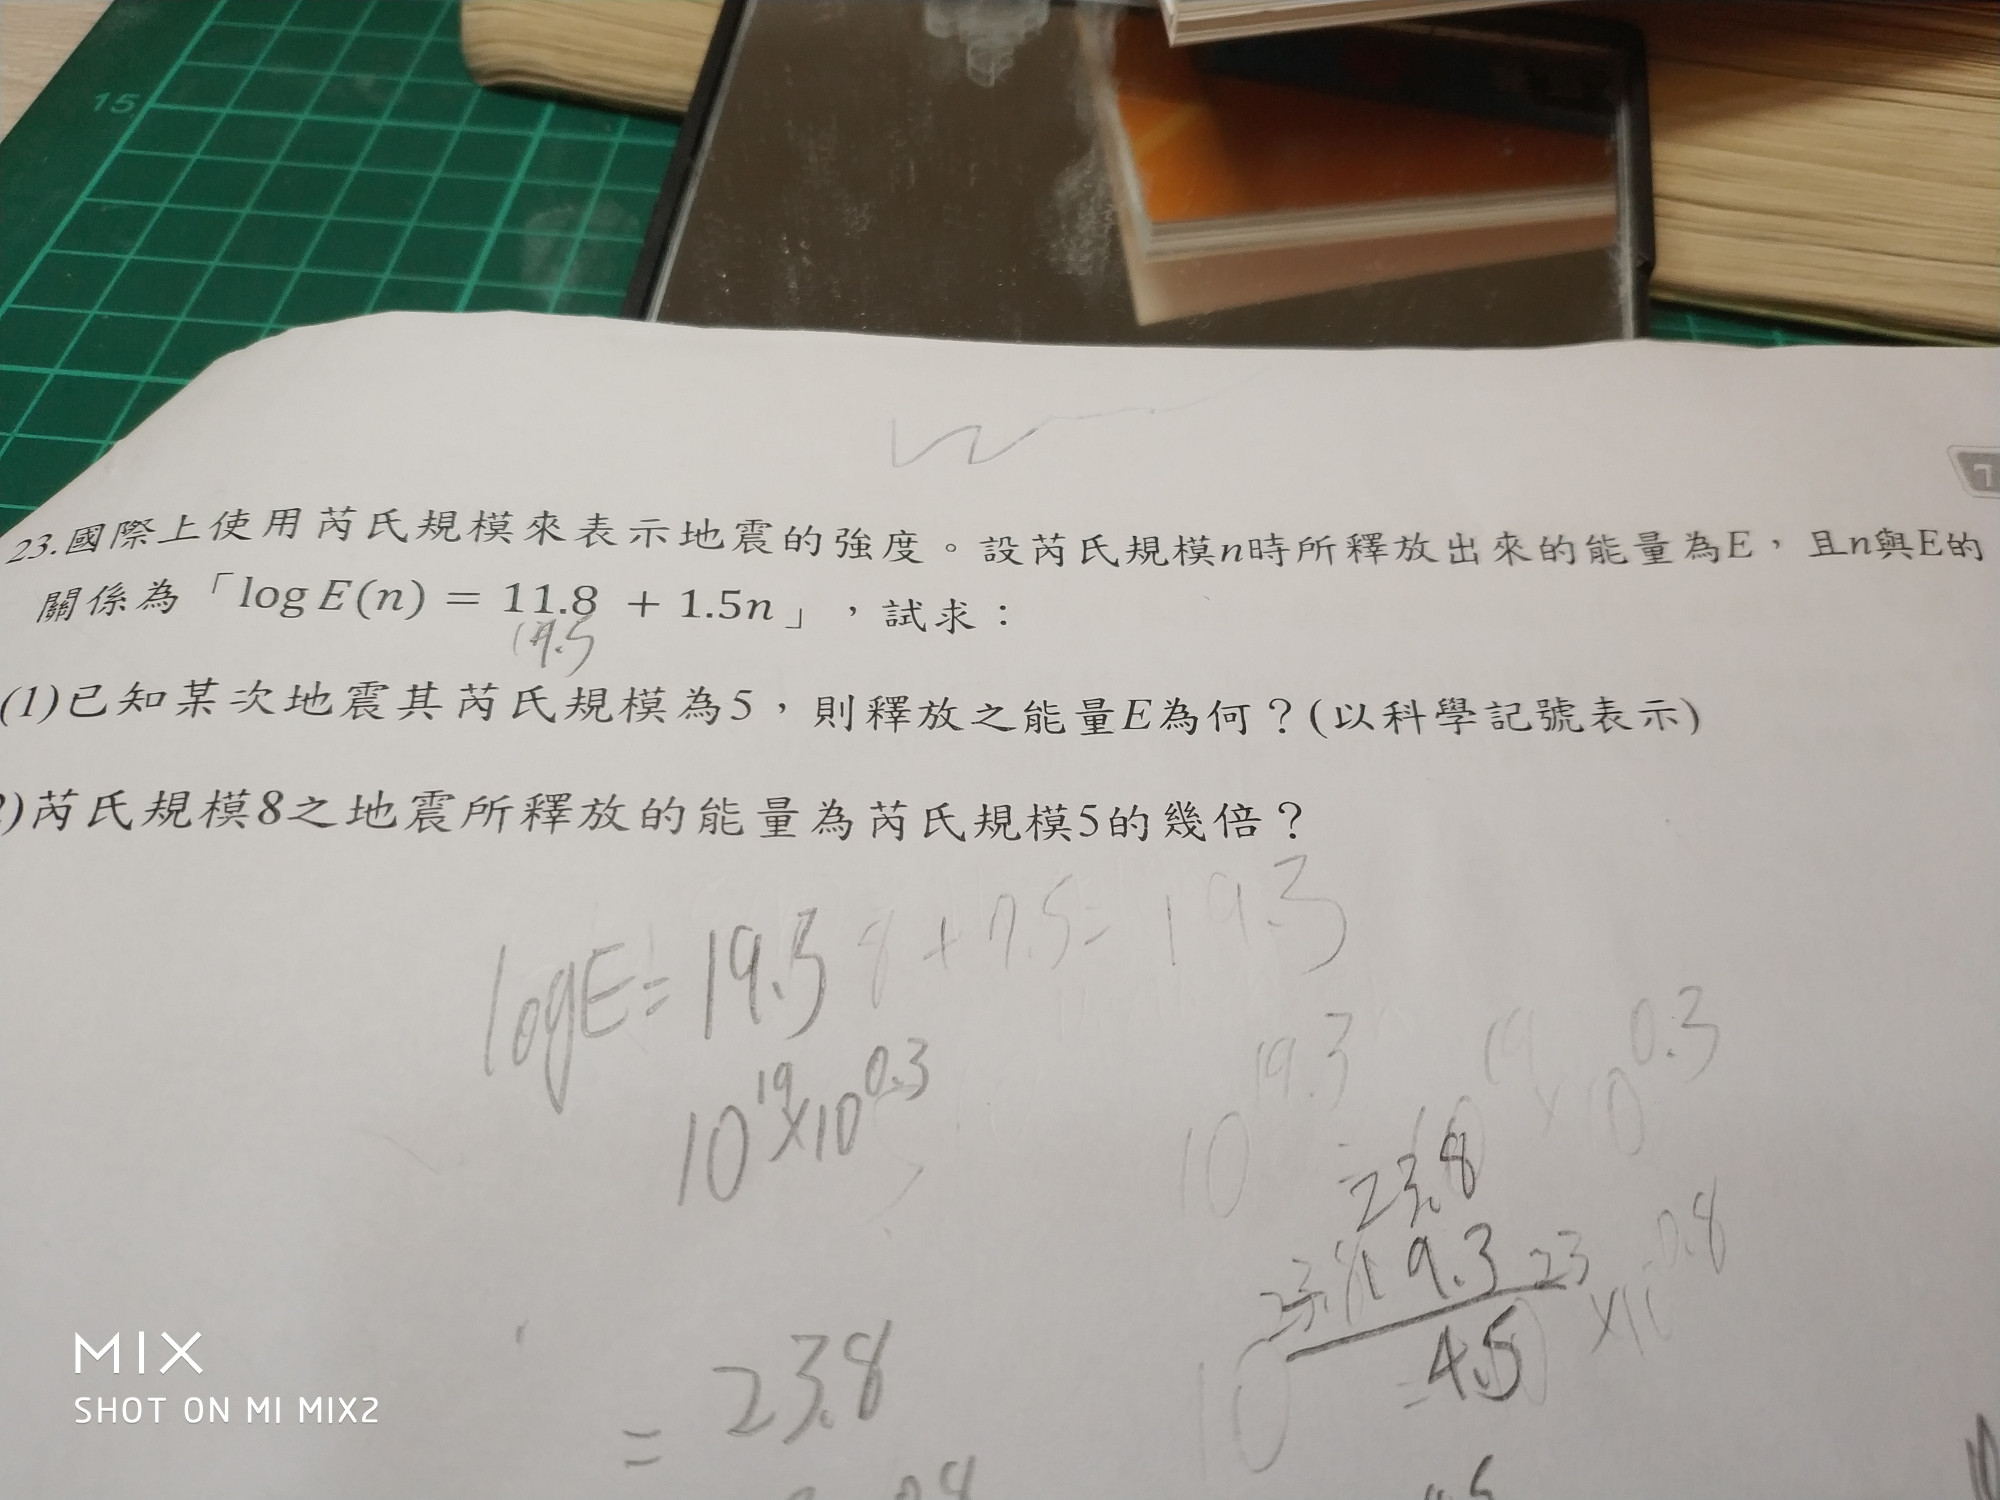 15
7
23.國際上使用芮氏規模來表示地震的強度。設芮氏規模n時所釋放出來的能量為E,且n與E的
關係為「log E(n) = 11.8 + 1.5n」,試求:
19.5
(1)已知某次地震其芮氏規模為5,則釋放之能量E為何?(以科學記號表示)
)芮氏規模8之地震所釋放的能量為芮氏規模5的幾倍?
logE=19.3 8+7.5=19.3
10^19×10^0.3
10^19.3 19 ×10^0.3
23.8
19.3 23 ×10^0.8
=4.5
= 23.8
0.8
MIX
SHOT ON MI MIX2